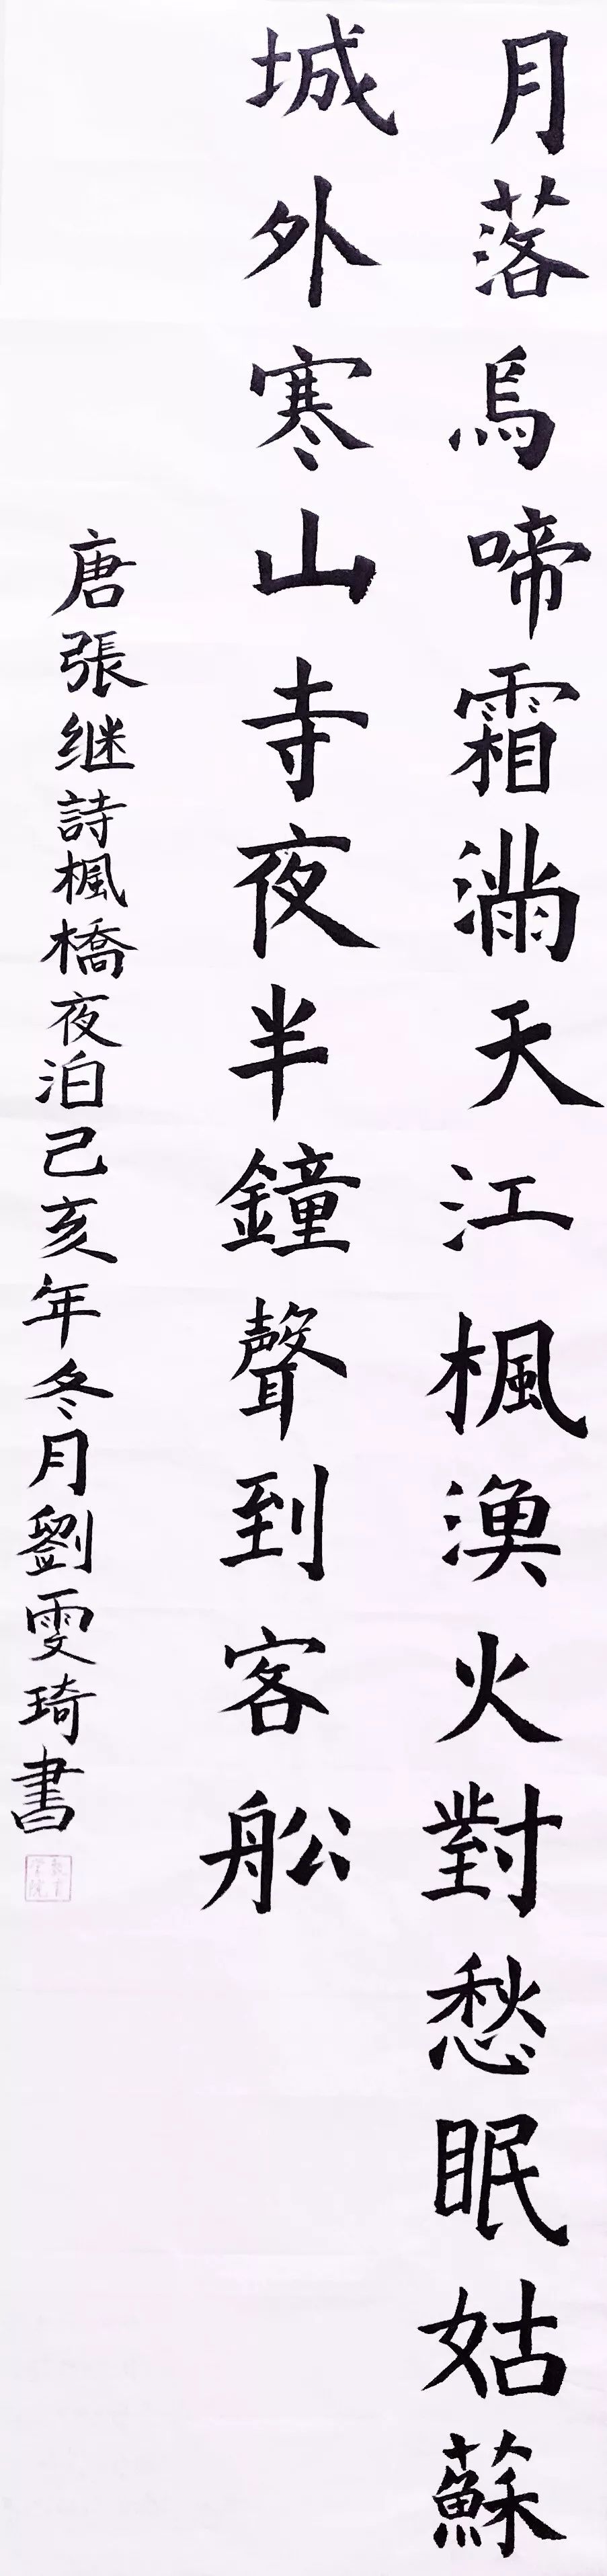 月落烏啼霜滿天江楓漁火對愁眠姑蘇
城外寒山寺夜半鐘聲到客船
唐張继詩楓橋夜泊己亥年冬月劉雯琦書